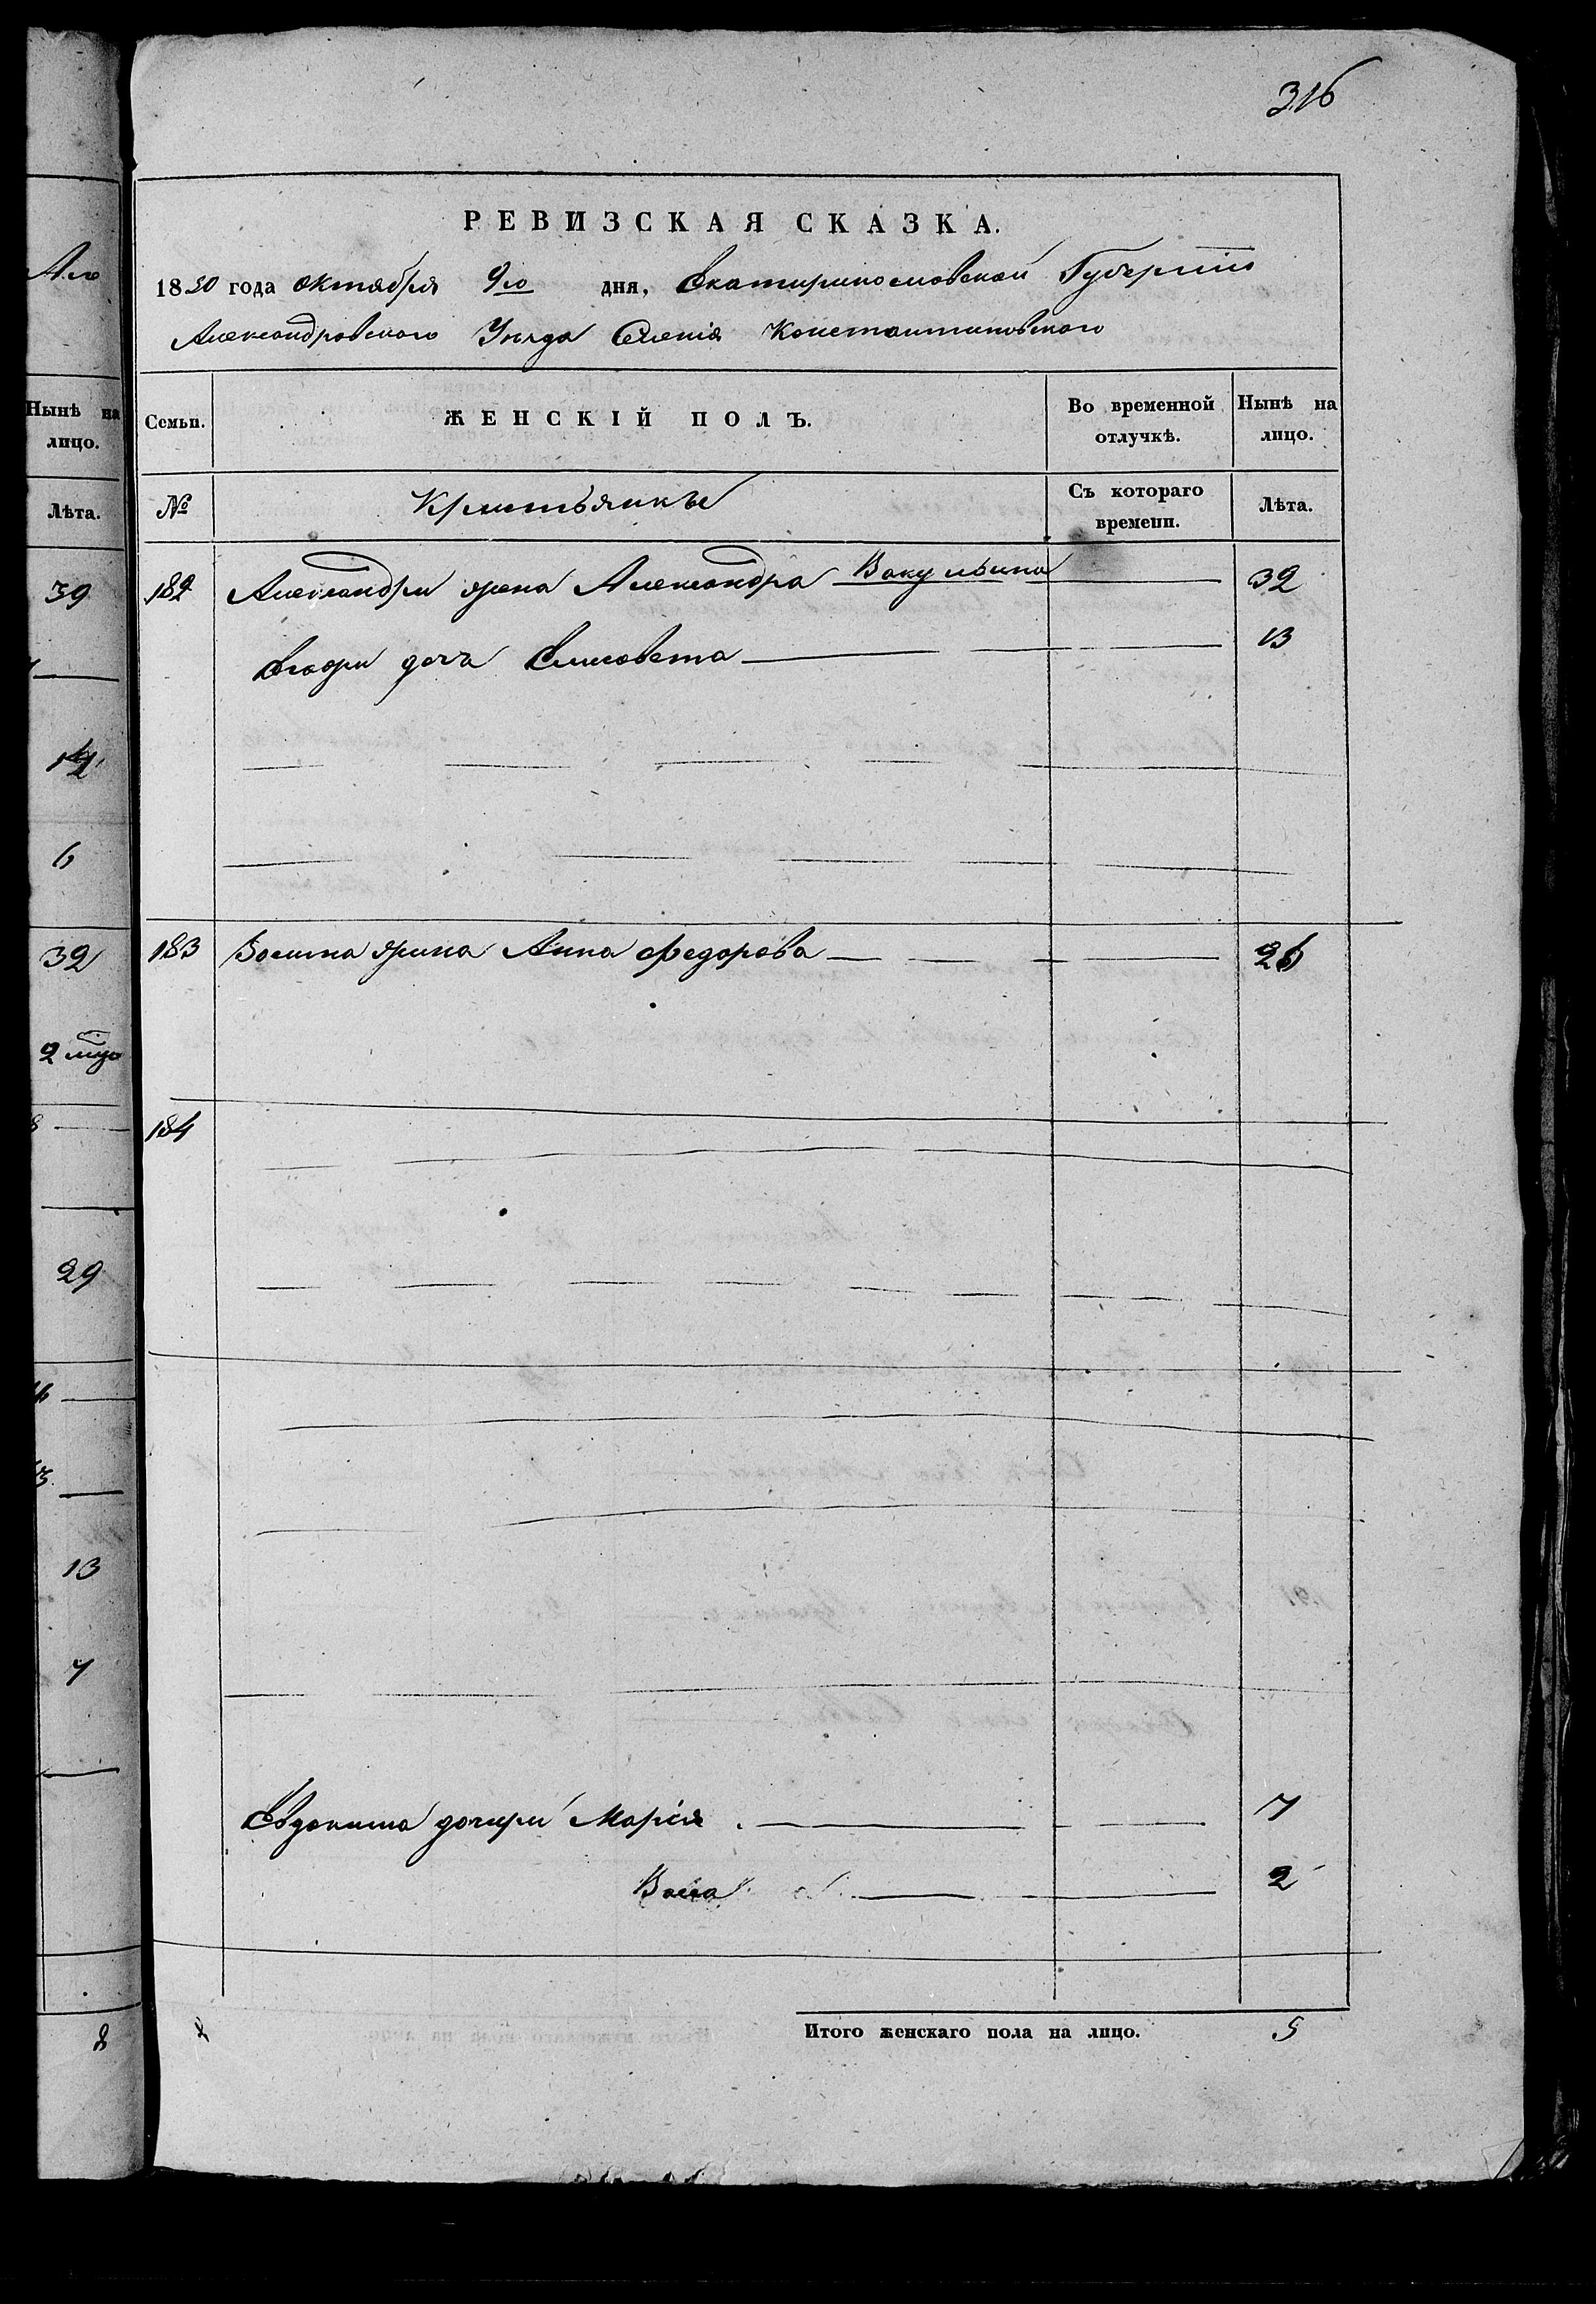 316
РЕВИЗСКАЯ СКАЗКА.
1850 года октября 9го дня, Екатеринославской Губернии
Александровского Уезда Селенія Константиновского
Семьи. ЖЕНСКІЙ ПОЛЪ. Во временной отлучкѣ. Нынѣ на лицо.
№ Кристьянкъ Съ котораго времени. Лѣта.
182 Александри жена Александра Вакульина 32
Елисовета 13
183 жена Анна Федорова 26
184
Евдокима дочери Марія 7
Васса 2
Итого женскаго пола на лицо. 5
Нынѣ на лицо.
Лѣта.
39
6
32
29
13
7
8